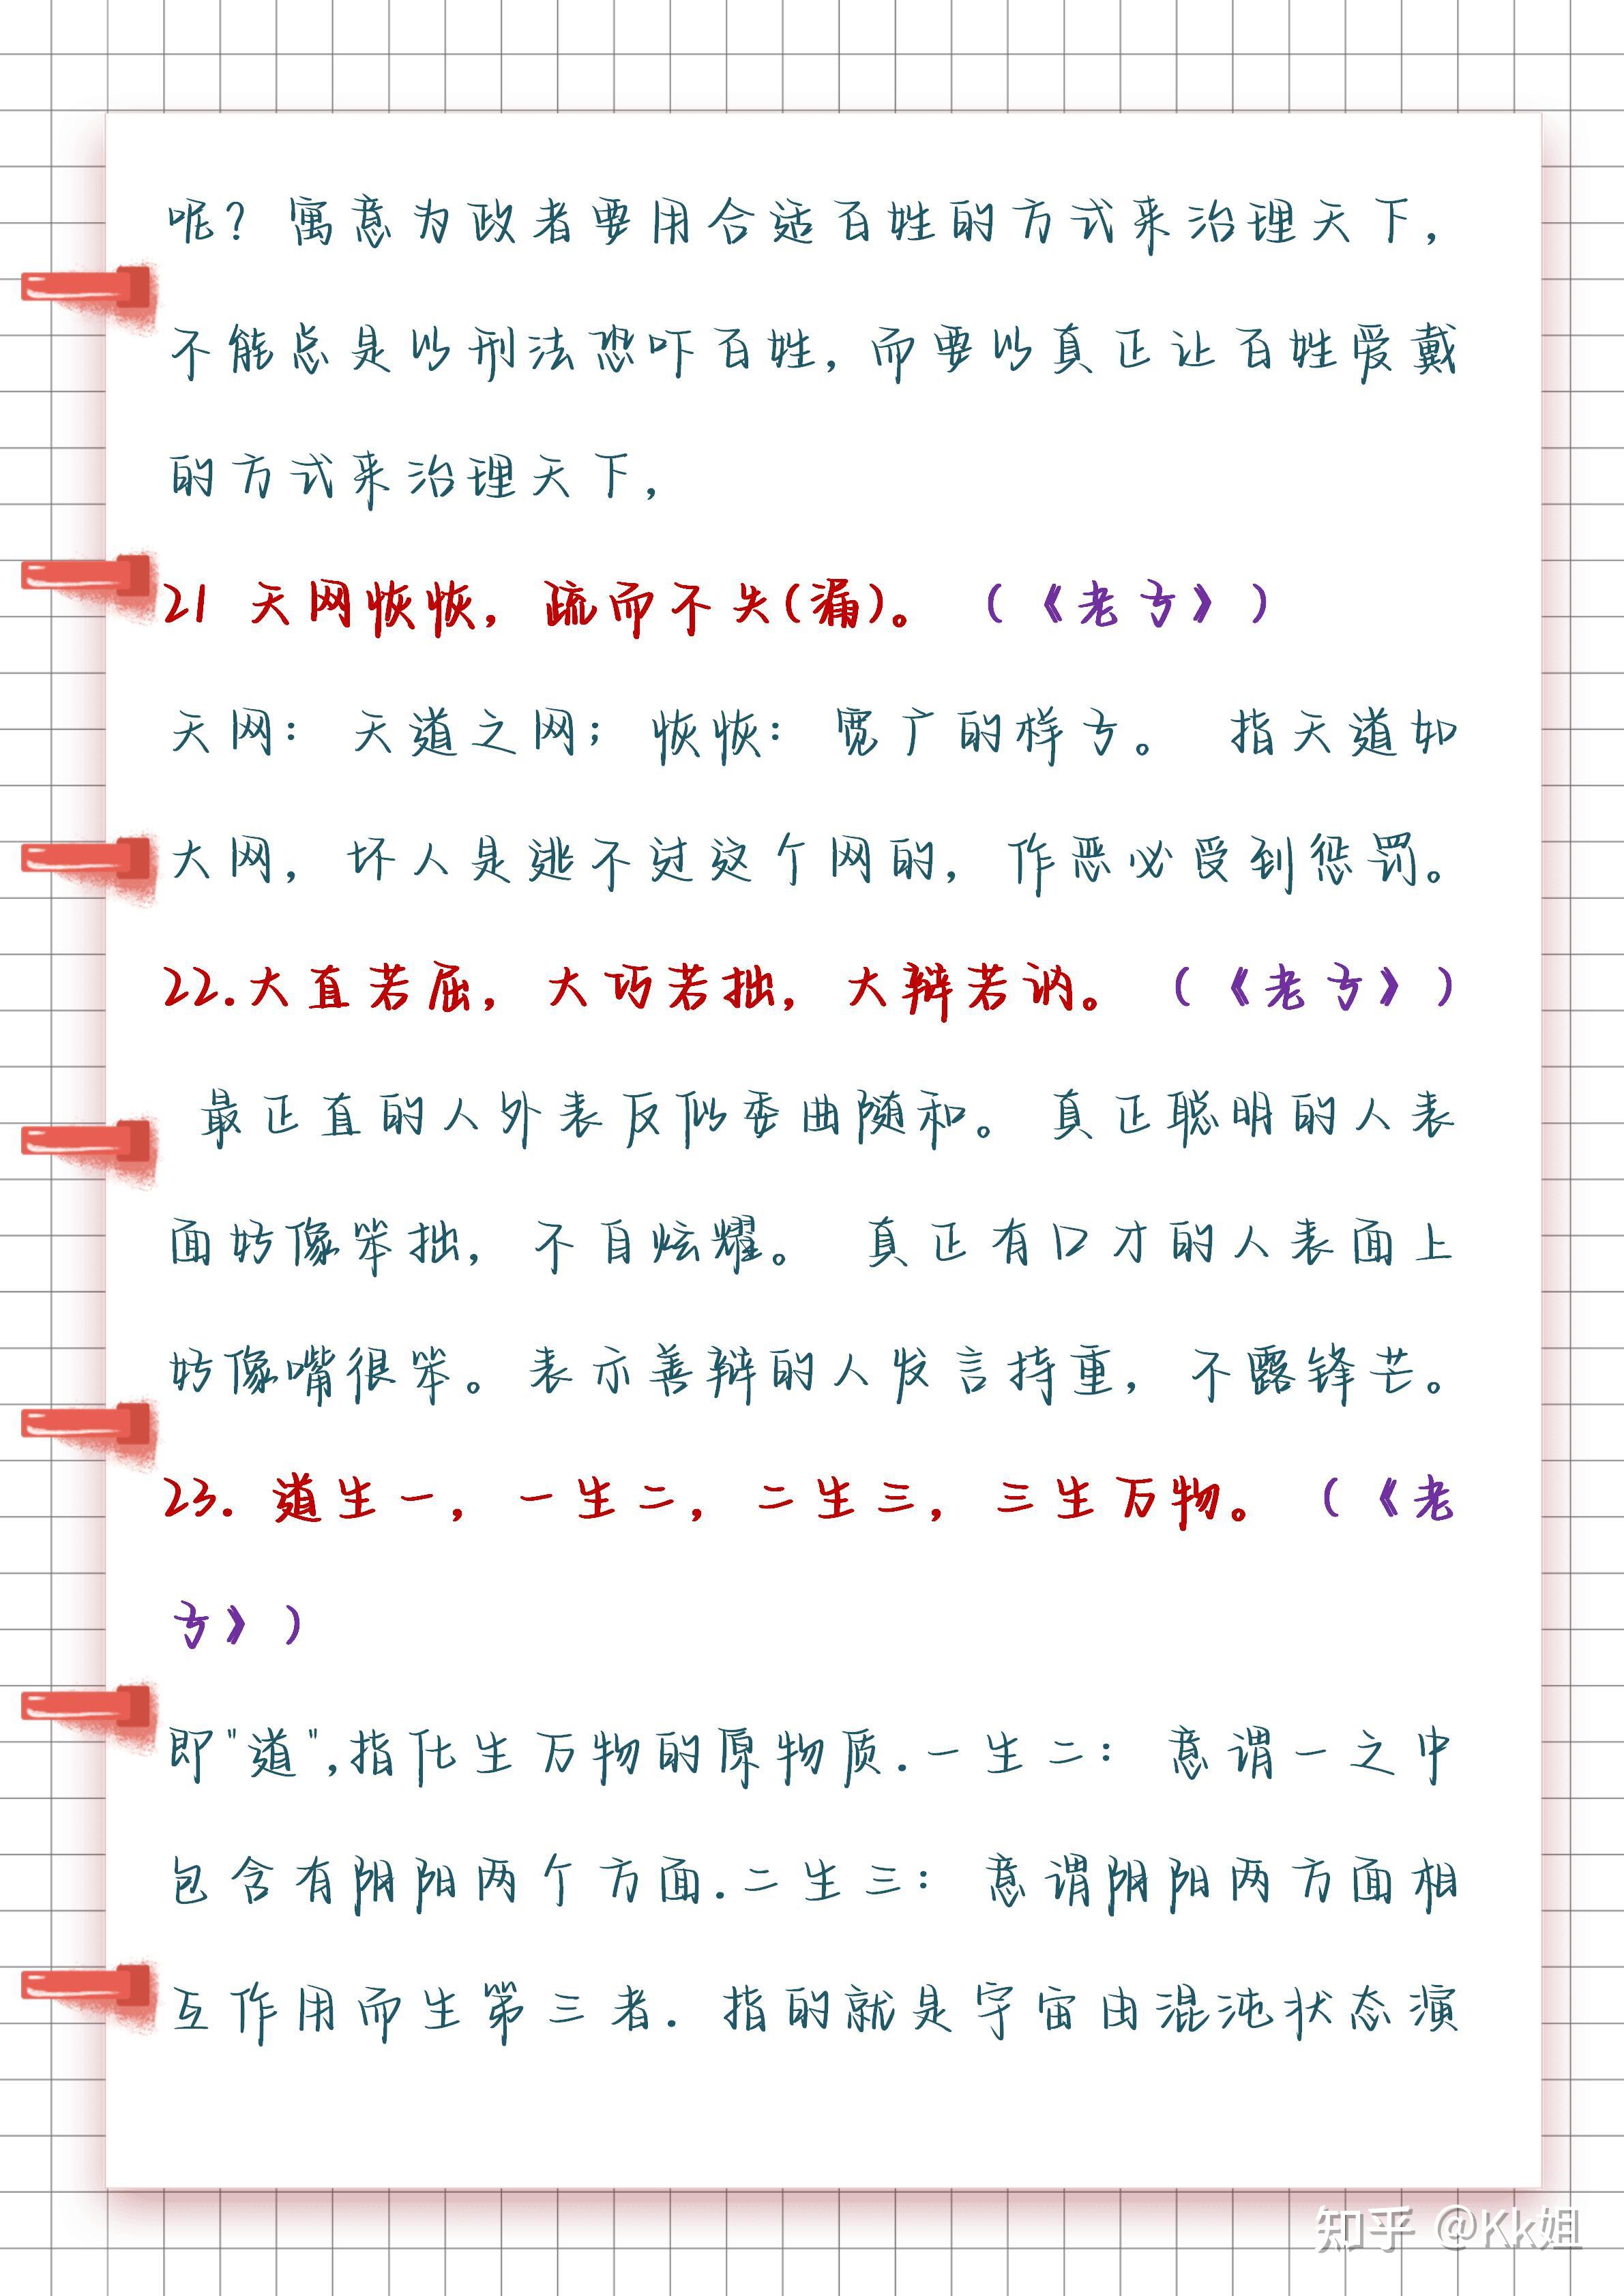 呢？寓意为政者要用合适百姓的方式来治理天下，
不能总是以刑法恐吓百姓，而要以真正让百姓爱戴
的方式来治理天下，
21 天网恢恢，疏而不失(漏)。（《老子》）
天网：天道之网；恢恢：宽广的样子。 指天道如
大网，坏人是逃不过这个网的，作恶必受到惩罚。
22.大直若屈，大巧若拙，大辩若讷。（《老子》）
最正直的人外表反似委曲随和。真正聪明的人表
面好像笨拙，不自炫耀。 真正有口才的人表面上
好像嘴很笨。表示善辩的人发言持重，不露锋芒。
23. 道生一，一生二，二生三，三生万物。（《老
子》）
即"道",指化生万物的原物质.一生二：意谓一之中
包含有阴阳两个方面.二生三：意谓阴阳两方面相
互作用而生第三者. 指的就是宇宙由混沌状态演
知乎 @Kk姐